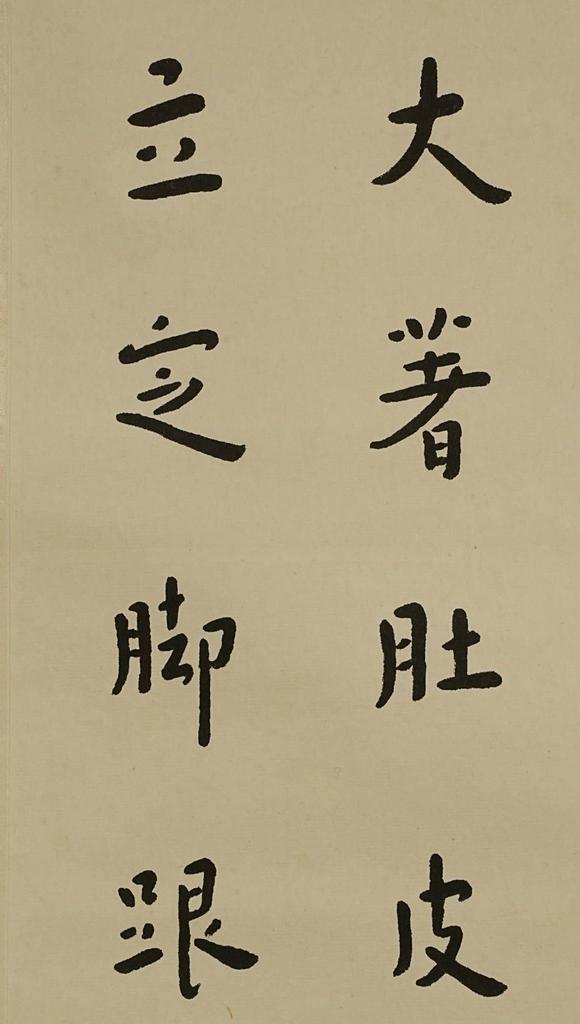 大著肚皮
立定脚跟